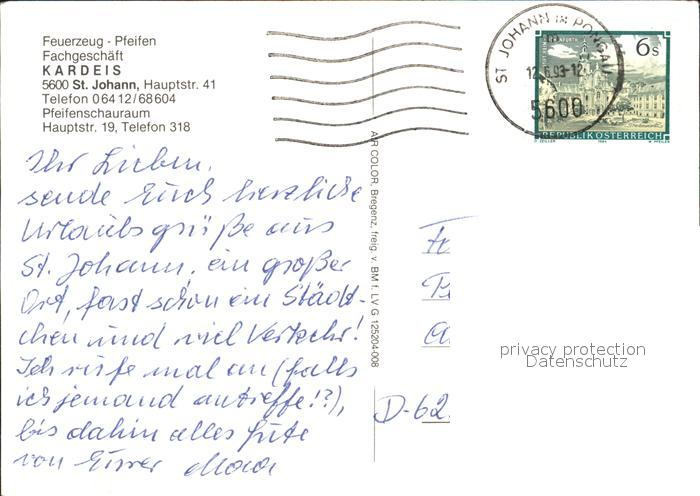 Feuerzeug - Pfeifen
Fachgeschäft
KARDEIS
5600 St. Johann, Hauptstr. 41
Telefon 06412/68604
Pfeifenschauraum
Hauptstr. 19, Telefon 318
Ihr Lieben,
sende Euch herzliche
Urlaubsgrüße aus
St. Johann, ein großer
Ort, fast schon ein Städt-
chen und viel Verkehr!
Ich rufe mal an (falls
ich jemand antreffe!?),
bis dahin alles Gute
von Eurer
AIR COLOR, Bregenz, freig. v. BM f. LV G 125204-008
ST. JOHANN IM PONGAU
5600
6 S
REPUBLIK ÖSTERREICH
D-62
privacy protection
Datenschutz